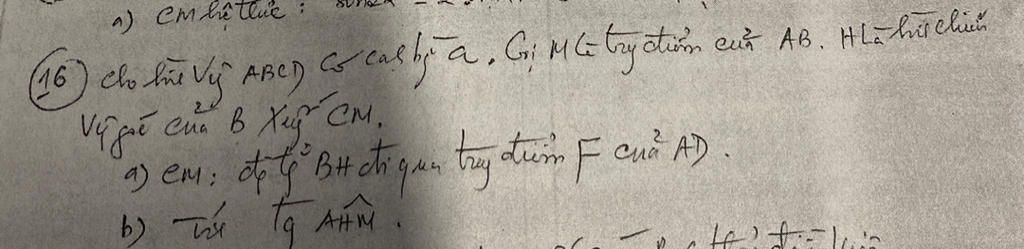 a) CM hệ thức :
16 Cho hv ABCD có cạnh bg a. Gọi M là trg điểm của AB. H là hình chiếu
Vg góc của B xuống CM.
a) CM: đg tg BH đi qua trg điểm F của AD.
b) Tính tg AHM.